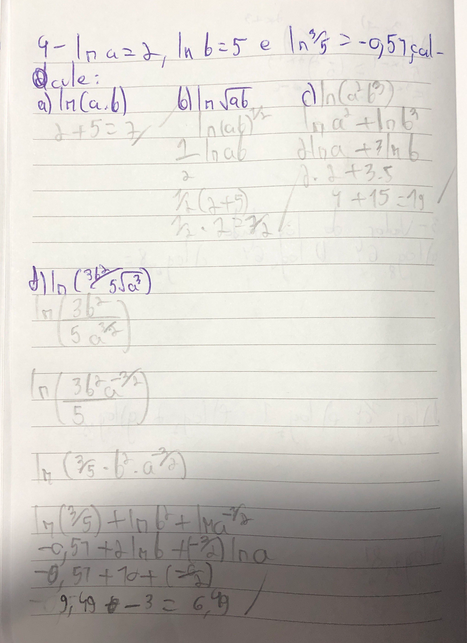 4 - ln a = 2, ln b = 5 e ln 3/5 = -0,51, cal-
cule:
a) ln(a.b) b) ln √ab c) ln(a²b³)
2 + 5 = 7 ln(ab)^1/2 ln a² + ln b³
1/2 ln ab 2 ln a + 3 ln b
1/2 (2+5) 2.2 + 3.5
1/2 . 7 = 7/2 4 + 15 = 19
d) ln (3b²/5√a³)
ln (3b²/5a^3/2)
ln (3b²a^-3/2/5)
ln (3/5 · b² · a^-3/2)
ln(3/5) + ln b² + ln a^-3/2
-0,51 + 2 ln b + (-3/2) ln a
-0,51 + 10 + (-6/2)
9,49 - 3 = 6,49